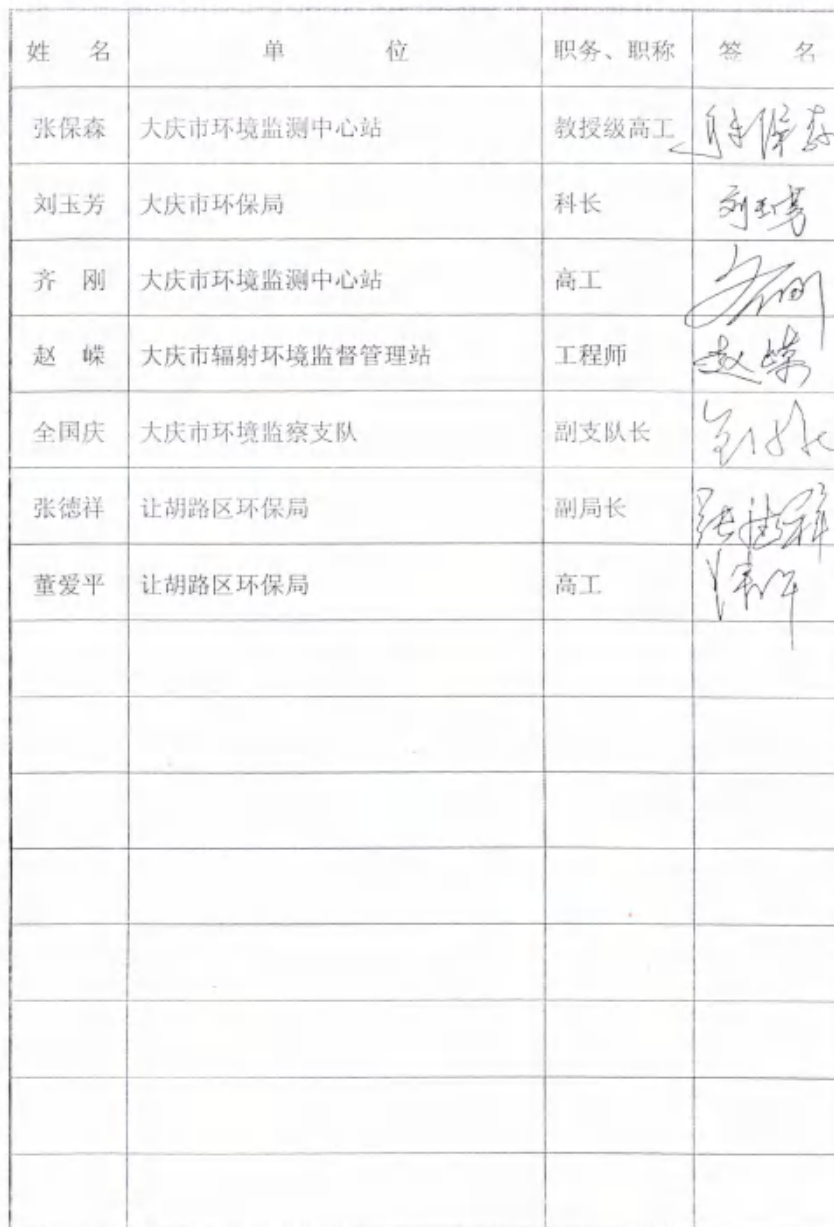 姓 名 单 位 职务、职称 签 名
张保森 大庆市环境监测中心站 教授级高工 张保森
刘玉芳 大庆市环保局 科长 刘玉芳
齐 刚 大庆市环境监测中心站 高工 齐刚
赵 嵘 大庆市辐射环境监督管理站 工程师 赵嵘
全国庆 大庆市环境监察支队 副支队长
张德祥 让胡路区环保局 副局长 张德祥
董爱平 让胡路区环保局 高工